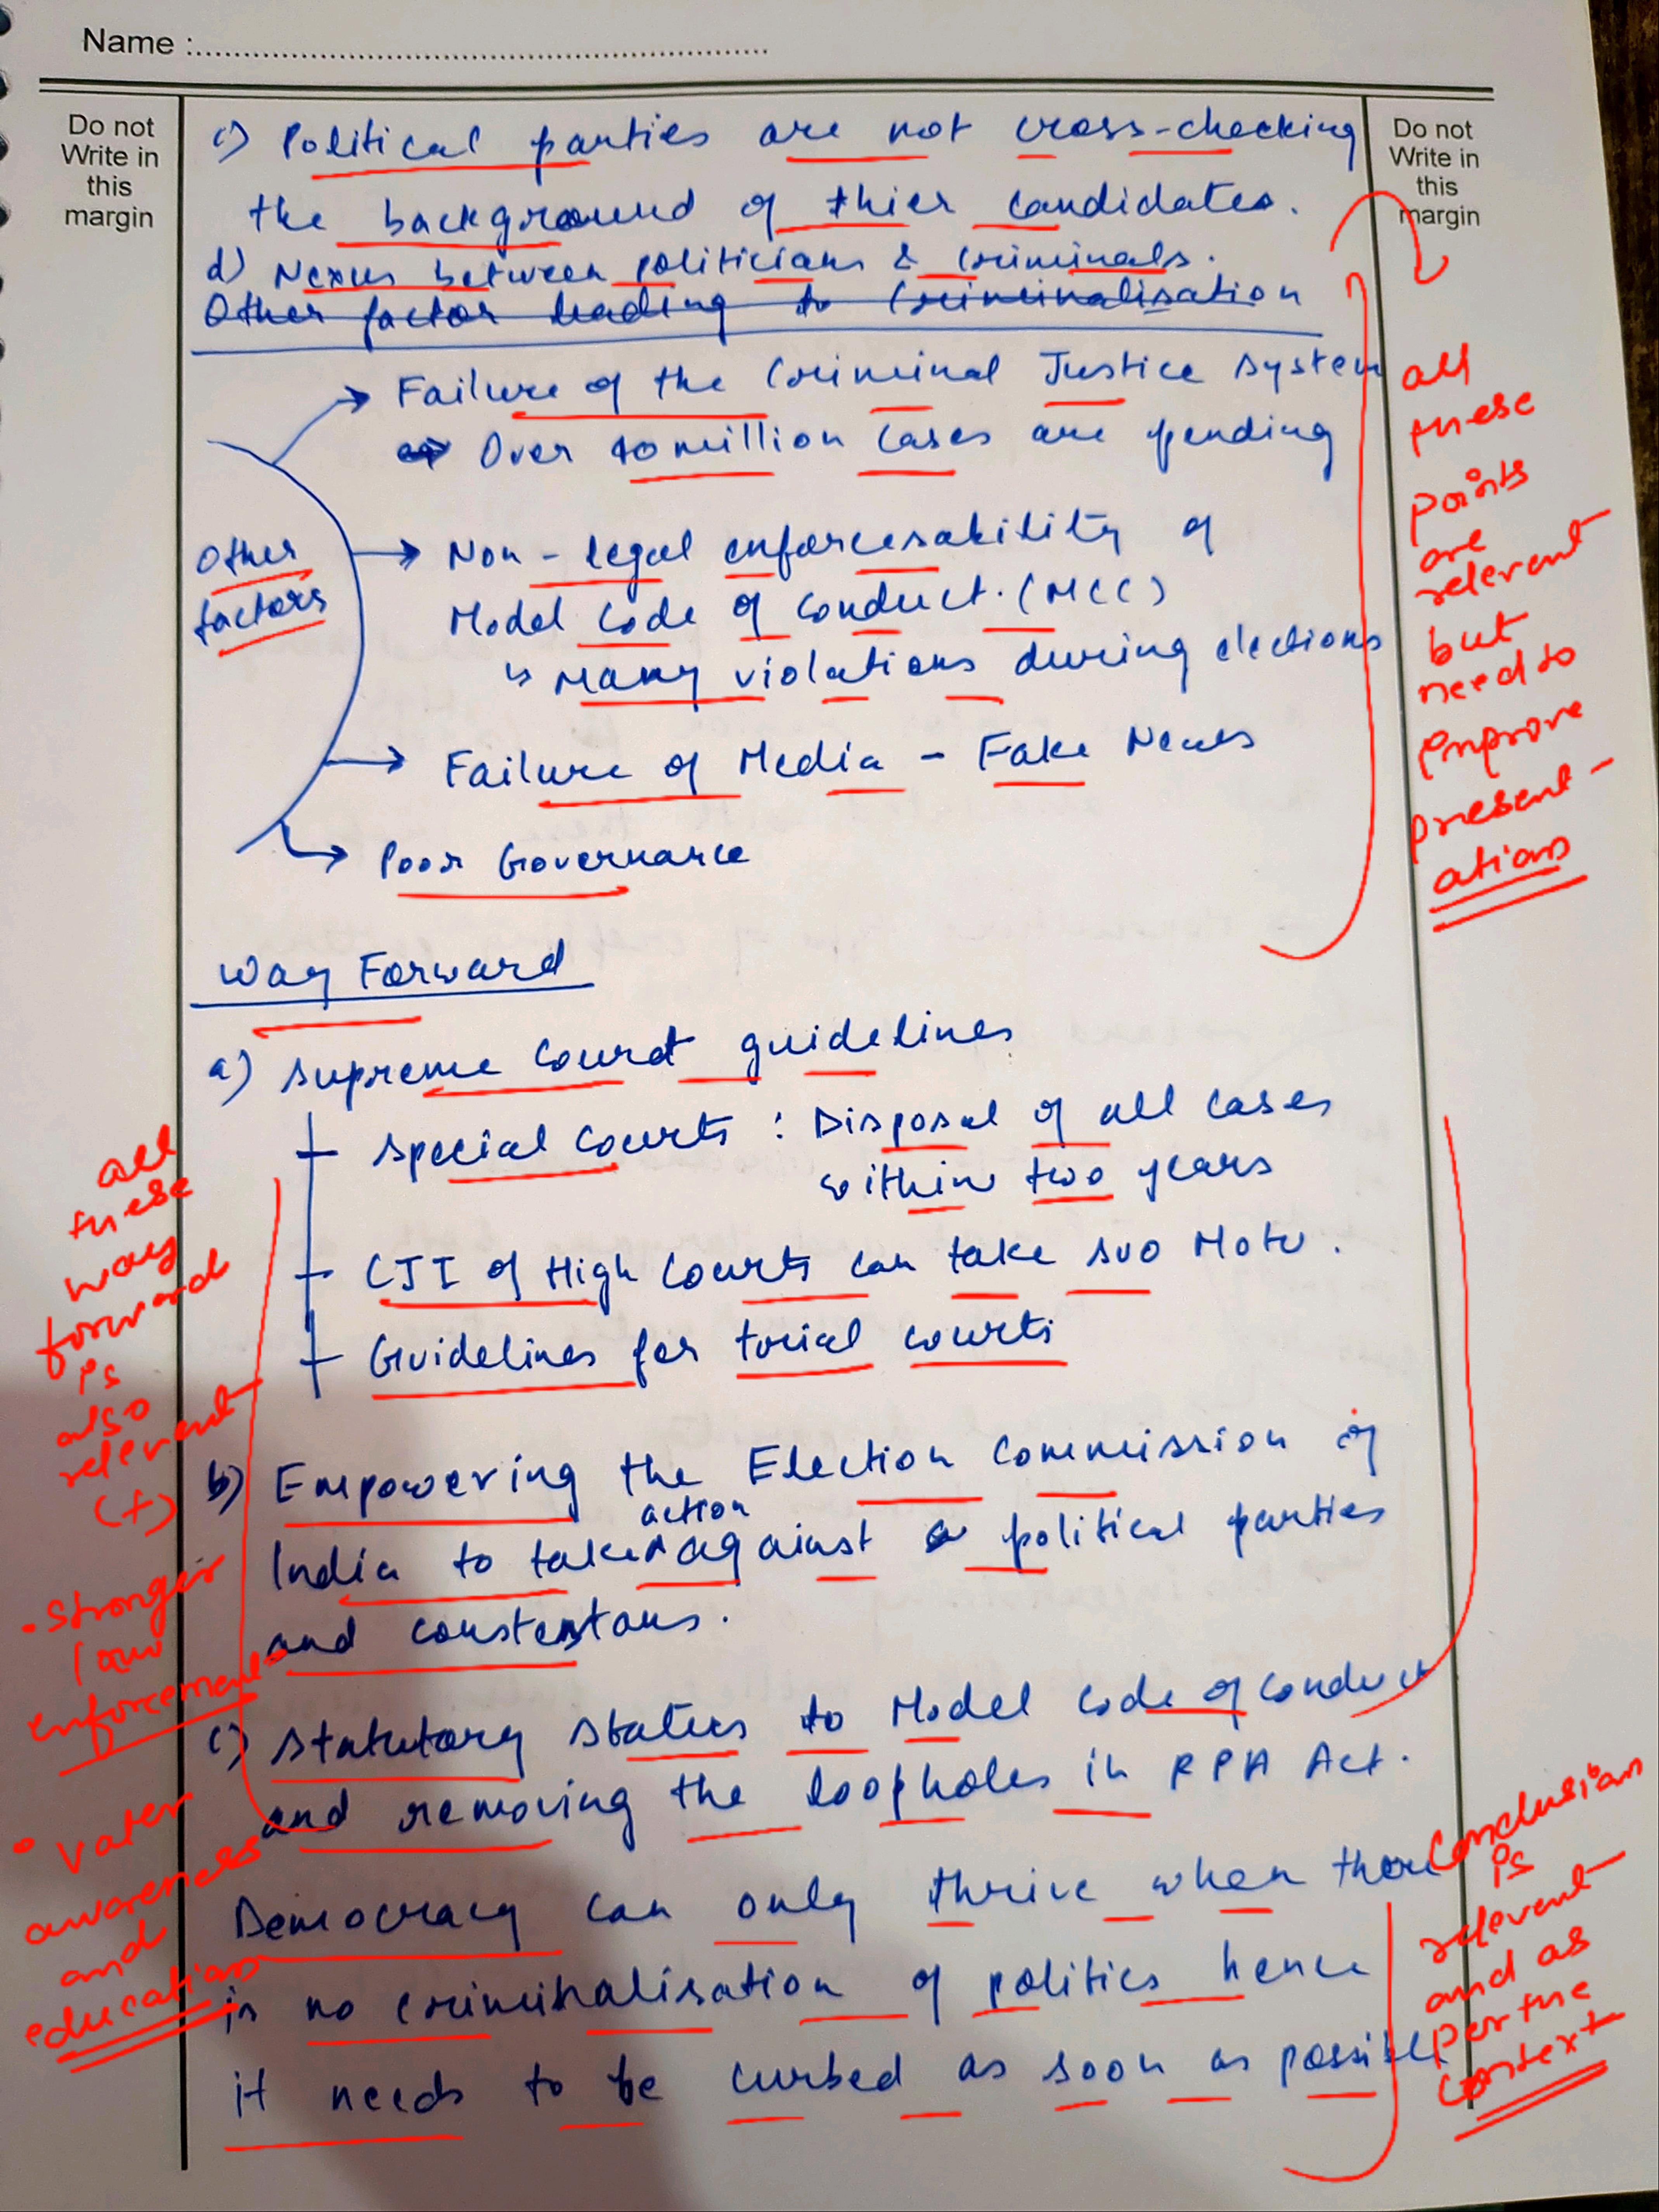 Name :
Do not
Write in
this
margin
Do not
Write in
this
margin
c) Political parties are not cross-checking
the background of thier candidates.
d) Nexus between politicians & criminals.
Other factor leading to Criminalisation
Other
factors
→ Failure of the Criminal Justice System
⇒ Over 40 million cases are pending
→ Non-legal enforcesability of
Model Code of Conduct. (MCC)
↳ Many violations during elections
→ Failure of Media - Fake News
→ Poor Governance
all
these
points
are
relevent
but
need to
improve
present-
ations
Way Forward
a) Supreme Court guidelines
- Special Courts : Disposal of all cases
within two years
- CJI of High Courts can take suo Motu.
- Guidelines for trial courts
b) Empowering the Election Commission of
India to take action against political parties
and constentans.
c) Statutory Status to Model Code of Conduct
and removing the loopholes in RPA Act.
Democracy can only thrive when there
is no criminalisation of politics hence
it needs to be curbed as soon as possible
all
these
way
forward
is
also
relevent
(+)
- Stronger
law
enforcement
• Voter
awareness
and
education
Conclusion
is
relevent
and as
per the
context